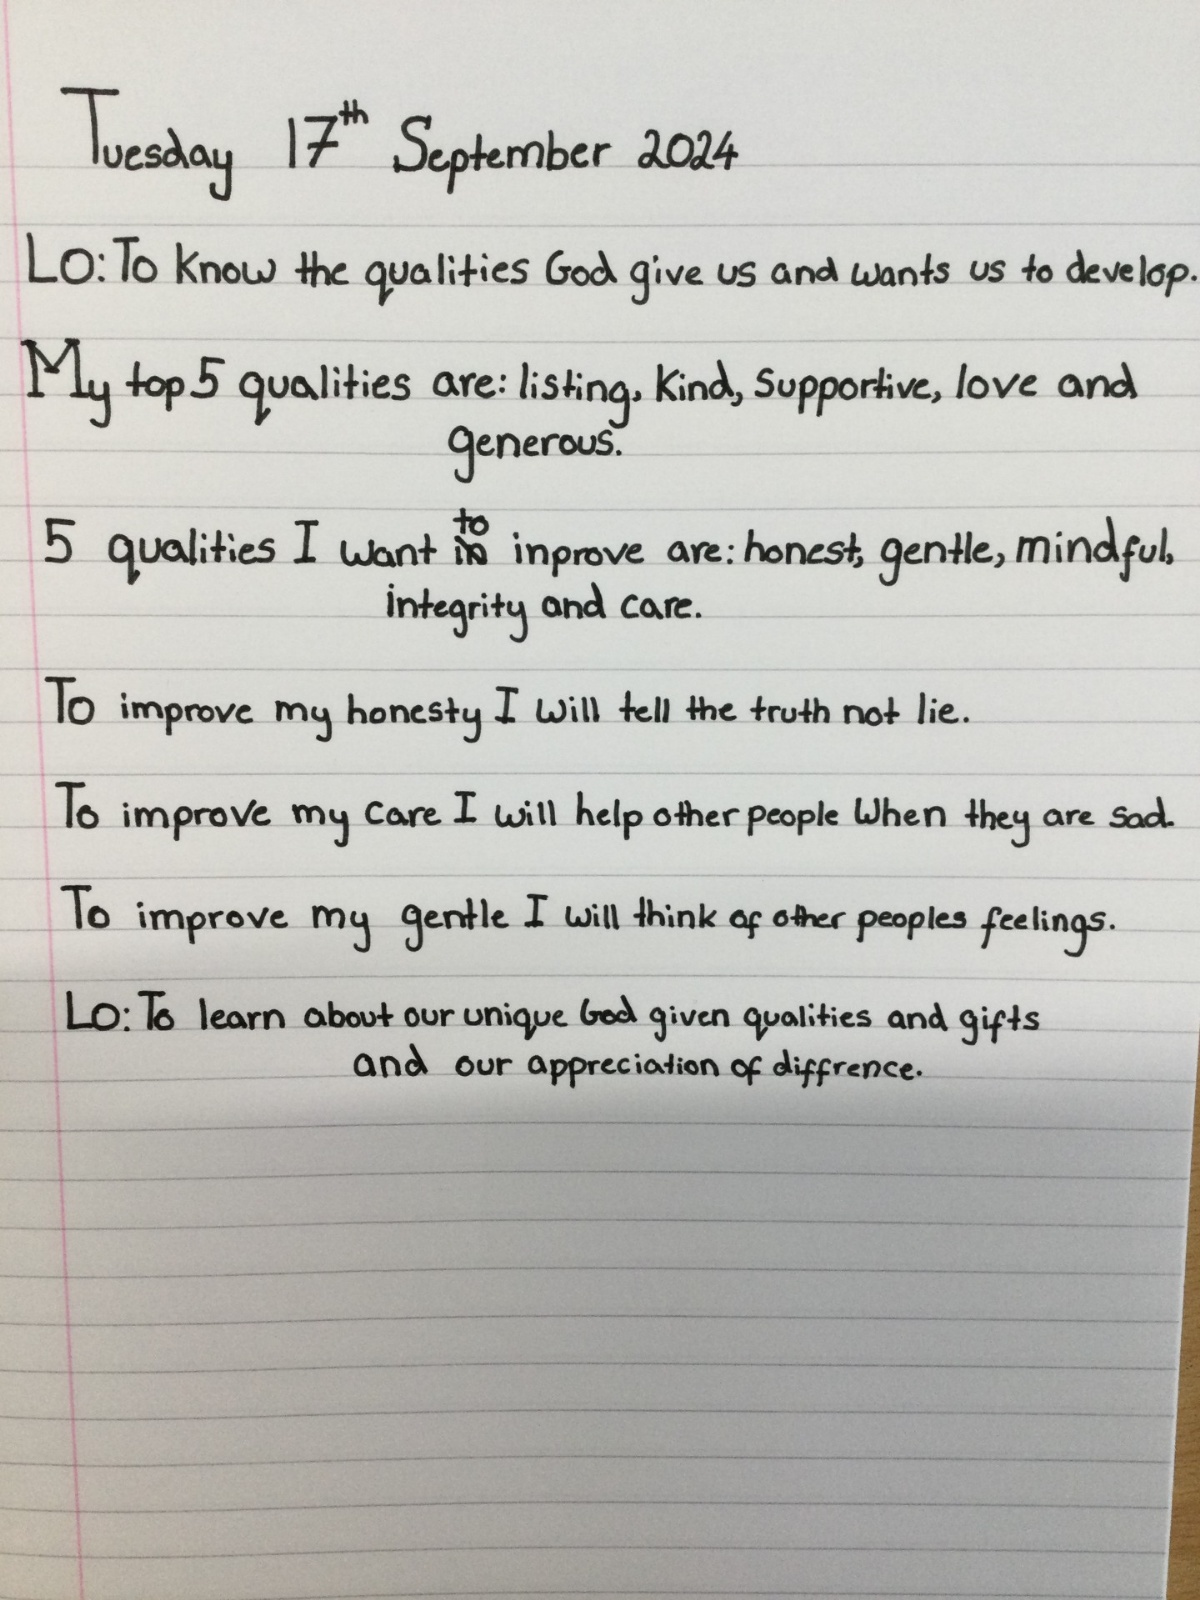 Tuesday 17th September 2024
LO: To know the qualities God give us and wants us to develop.
My top 5 qualities are: listing, kind, supportive, love and
generous.
5 qualities I want to inprove are: honest, gentle, mindful,
integrity and care.
To improve my honesty I will tell the truth not lie.
To improve my care I will help other people When they are sad.
To improve my gentle I will think of other peoples feelings.
LO: To learn about our unique God given qualities and gifts
and our appreciation of diffrence.